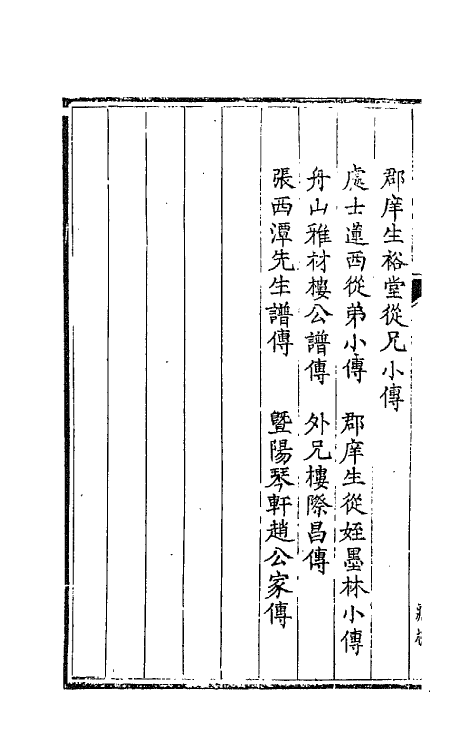 郡庠生裕堂從兄小傳
處士蓮西從弟小傳　郡庠生從姪墨林小傳
舟山雅材樓公譜傳　外兄樓際昌傳
張西潭先生譜傳　暨陽琴軒趙公家傳